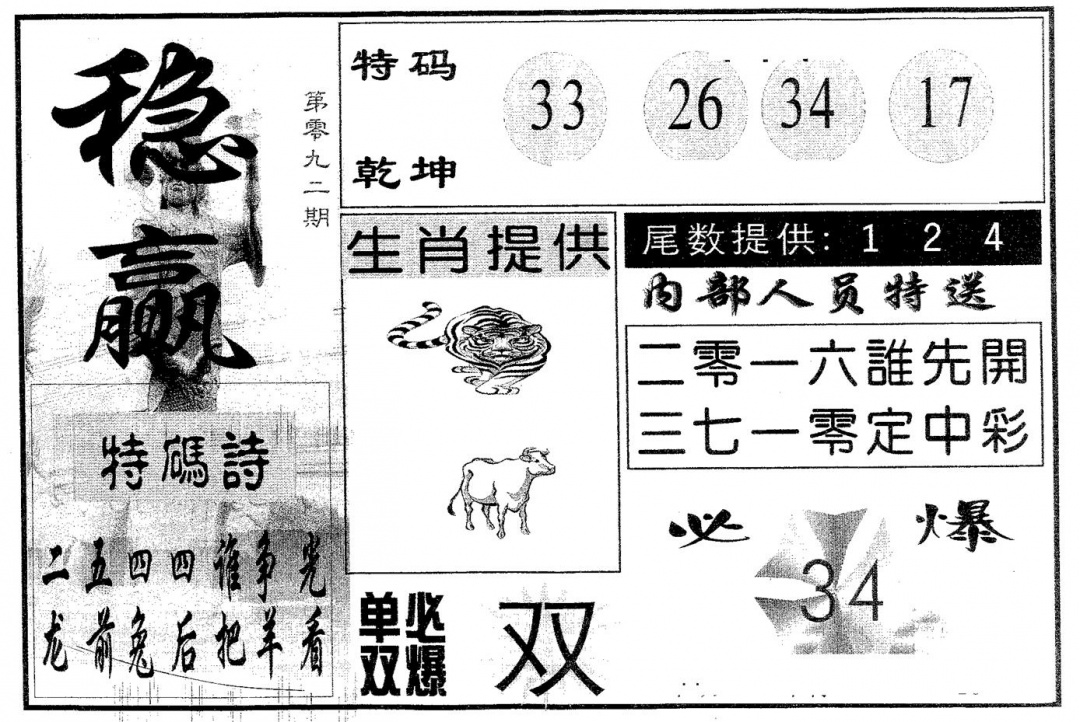 稳赢
第零九二期
特码
乾坤
33 26 34 17
生肖提供
尾数提供: 1 2 4
内部人员特送
二零一六誰先開
三七一零定中彩
特碼詩
二五四四谁争光
龙前兔后把羊看
必爆
34
单双必爆
双